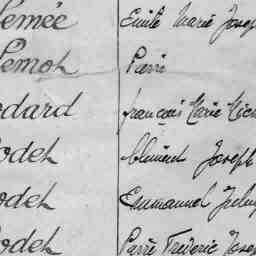 Lemée Emile Marie Joseph
Lemoh Pierre
odard françois Marie
odeh Clément Joseph
odeh Emmanuel
odeh Pierre Frédéric Jose